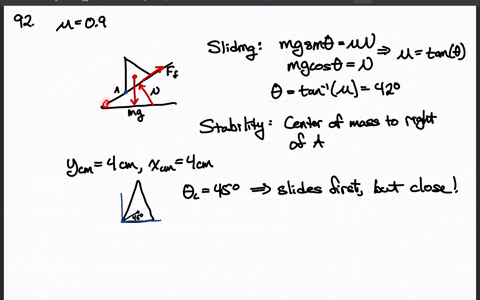 92. μ=0.9
Sliding: mgsinθ=μN
mgcosθ=N
⇒ μ=tan(θ)
θ=tan⁻¹(μ)=42°
A
N
Ff
mg
Stability: Center of mass to right
of A
ycm=4cm, xcm=4cm
θc=45° ⇒ slides first, but close!
45°